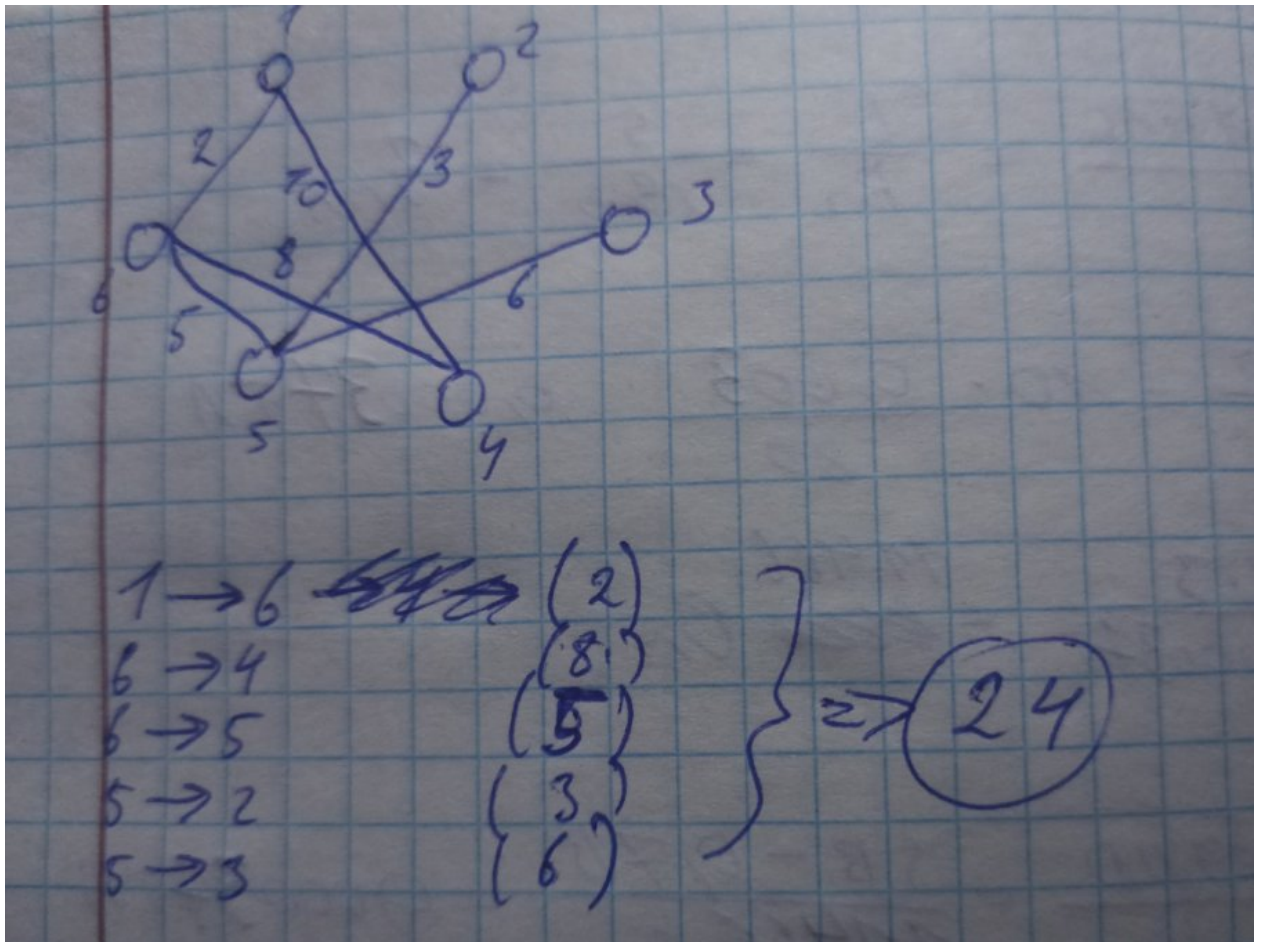 1
2
2
10
3
3
8
6
6
5
5
4
1 → 6 (2)
6 → 4 (8)
6 → 5 (5)
5 → 2 (3)
5 → 3 (6)
=> 24